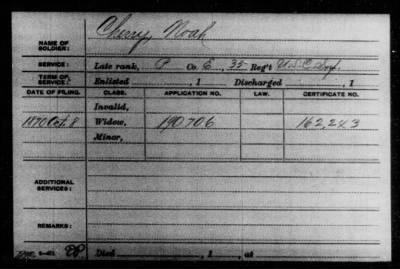 Cherry, Noah
NAME OF SOLDIER:
SERVICE: Late rank, P Co. E, 35 Reg't U.S.C. Inf.
TERM OF SERVICE: Enlisted , 1 Discharged , 1
DATE OF FILING. CLASS. APPLICATION NO. LAW. CERTIFICATE NO.
Invalid,
1870 Oct. 8 Widow, 190706 162,243
Minor,
ADDITIONAL SERVICES:
REMARKS:
Died , 1 , at